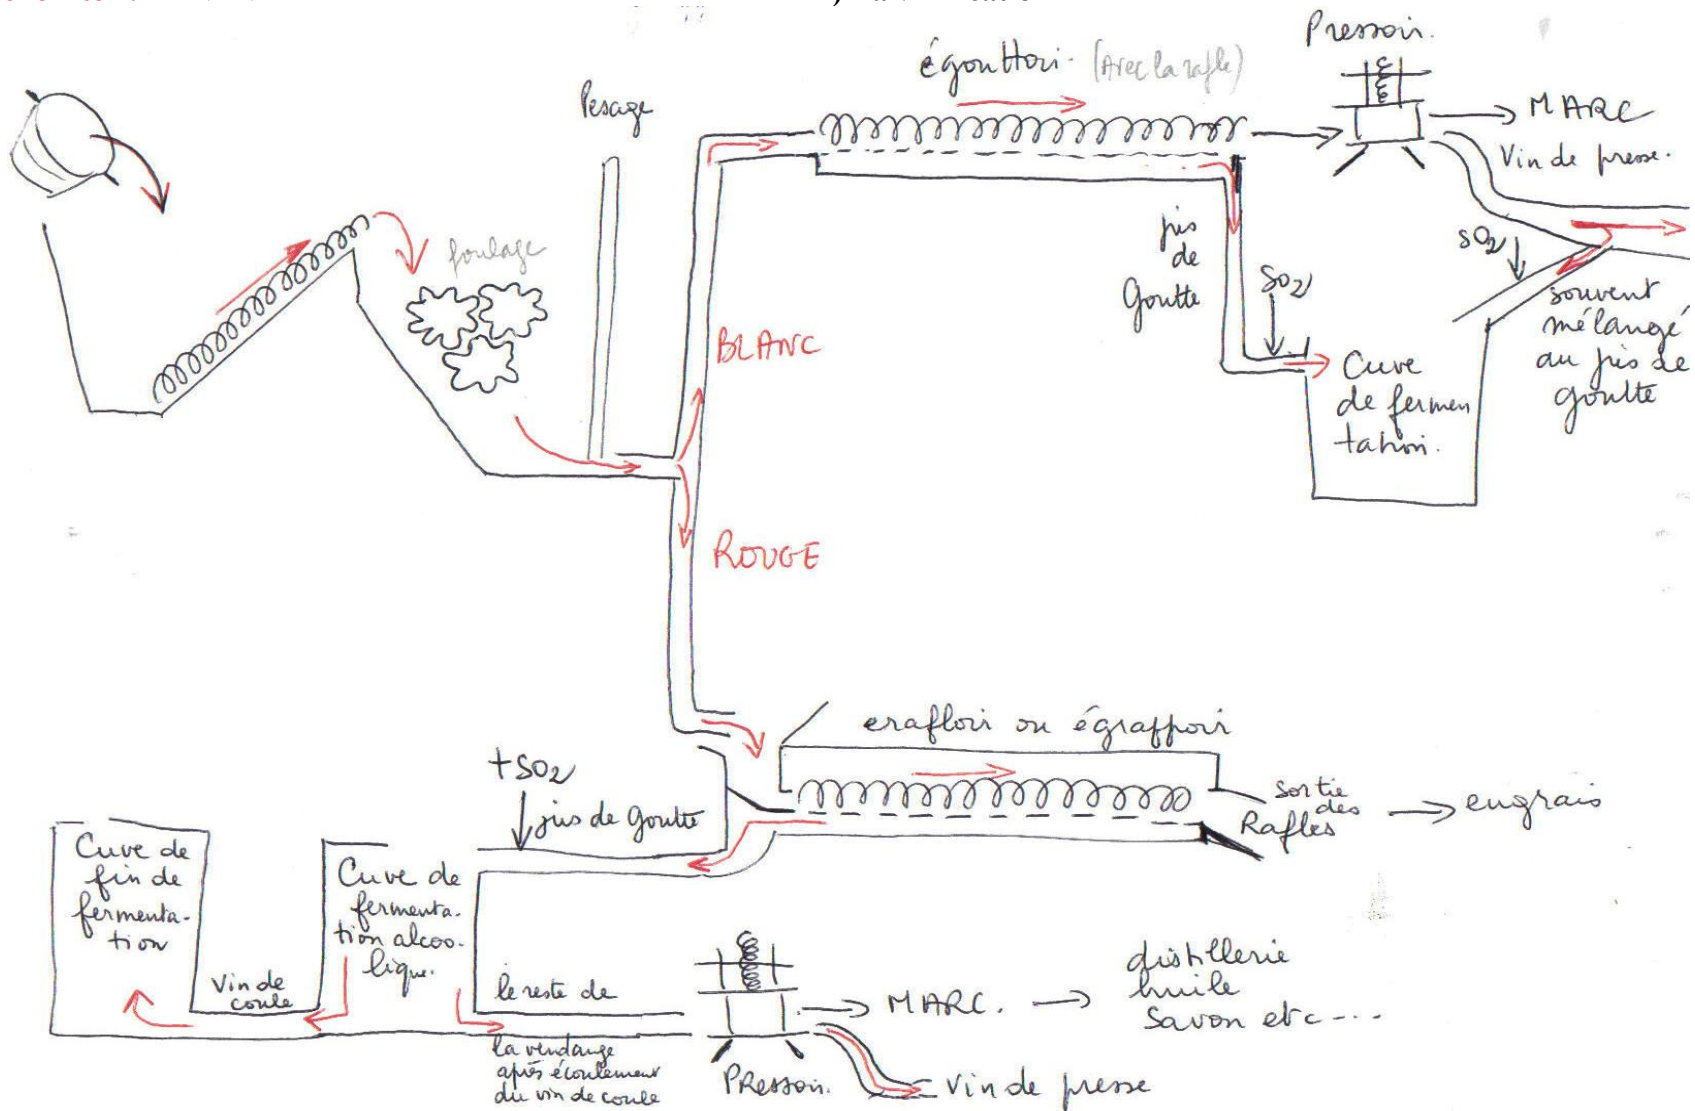 Pressoir.
égouttoir. (Avec la rafle)
Pesage
MARC
Vin de presse.
foulage
jus
de
Goutte
SO2
SO2
souvent
mélangé
au jus de
goutte
BLANC
Cuve
de fermen
tation.
ROUGE
erafloir ou égrappoir
+SO2
jus de Goutte
sortie
des
Rafles
engrais
Cuve de
fin de
fermenta-
tion
Cuve de
fermenta-
tion alcoo-
lique.
Vin de
coule
le reste de
la vendange
après écoulement
du vin de coule
MARC.
distillerie
huile
savon etc----
PRessoir.
Vin de presse